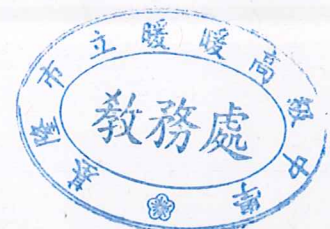 基隆市立暖暖高級中學
教務處